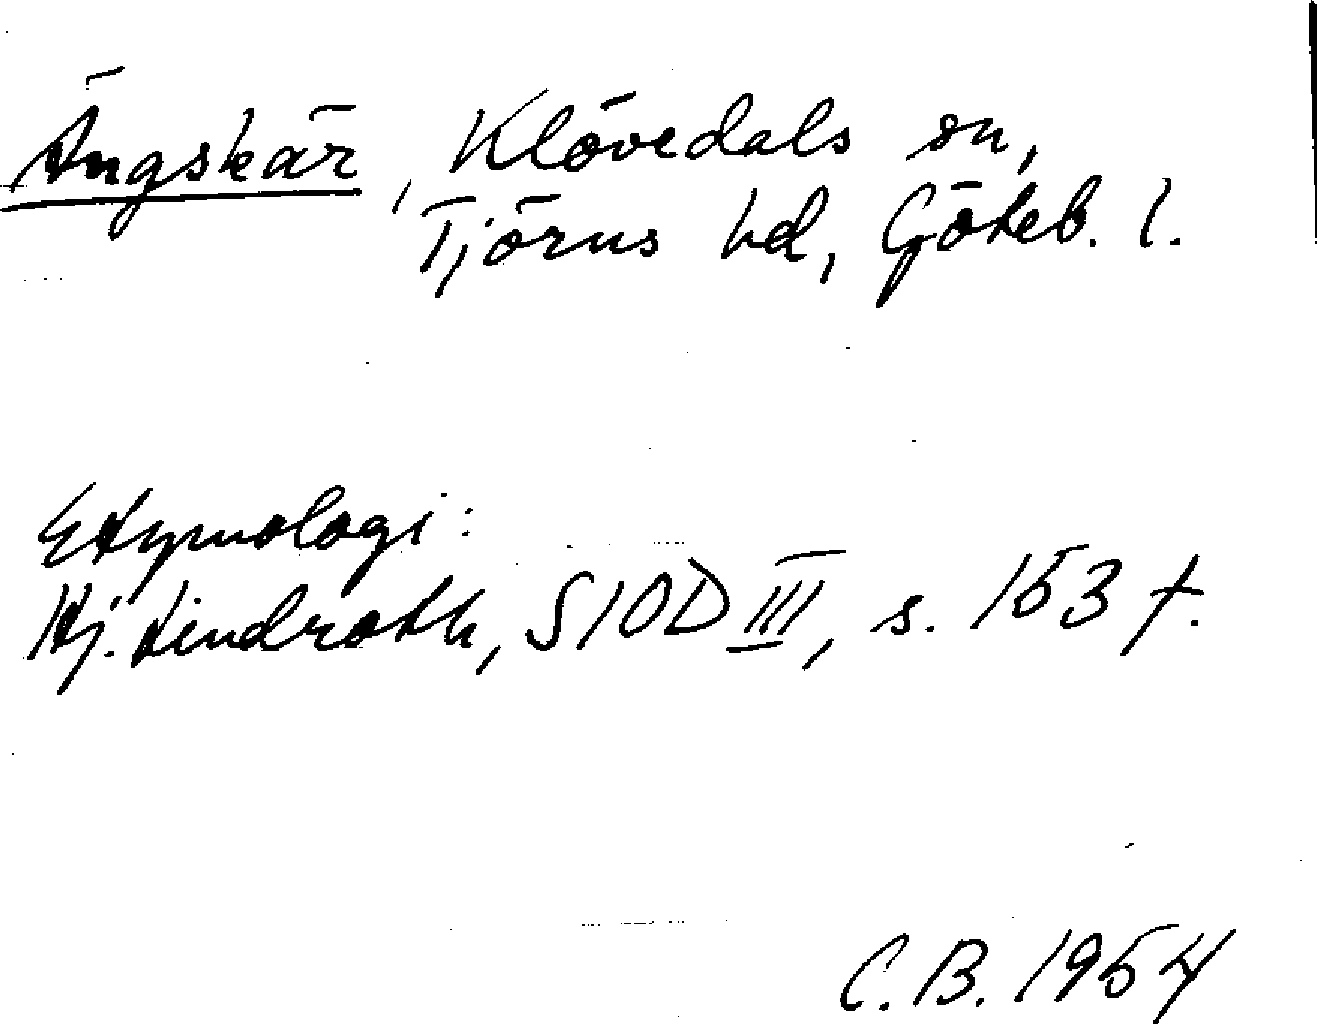 Ängskär, Klövedals sn,
Tjörns hd, Göteb. l.
Etymologi:
Hj. Lindroth, SIOD III, s. 153 f.
C.B. 1954